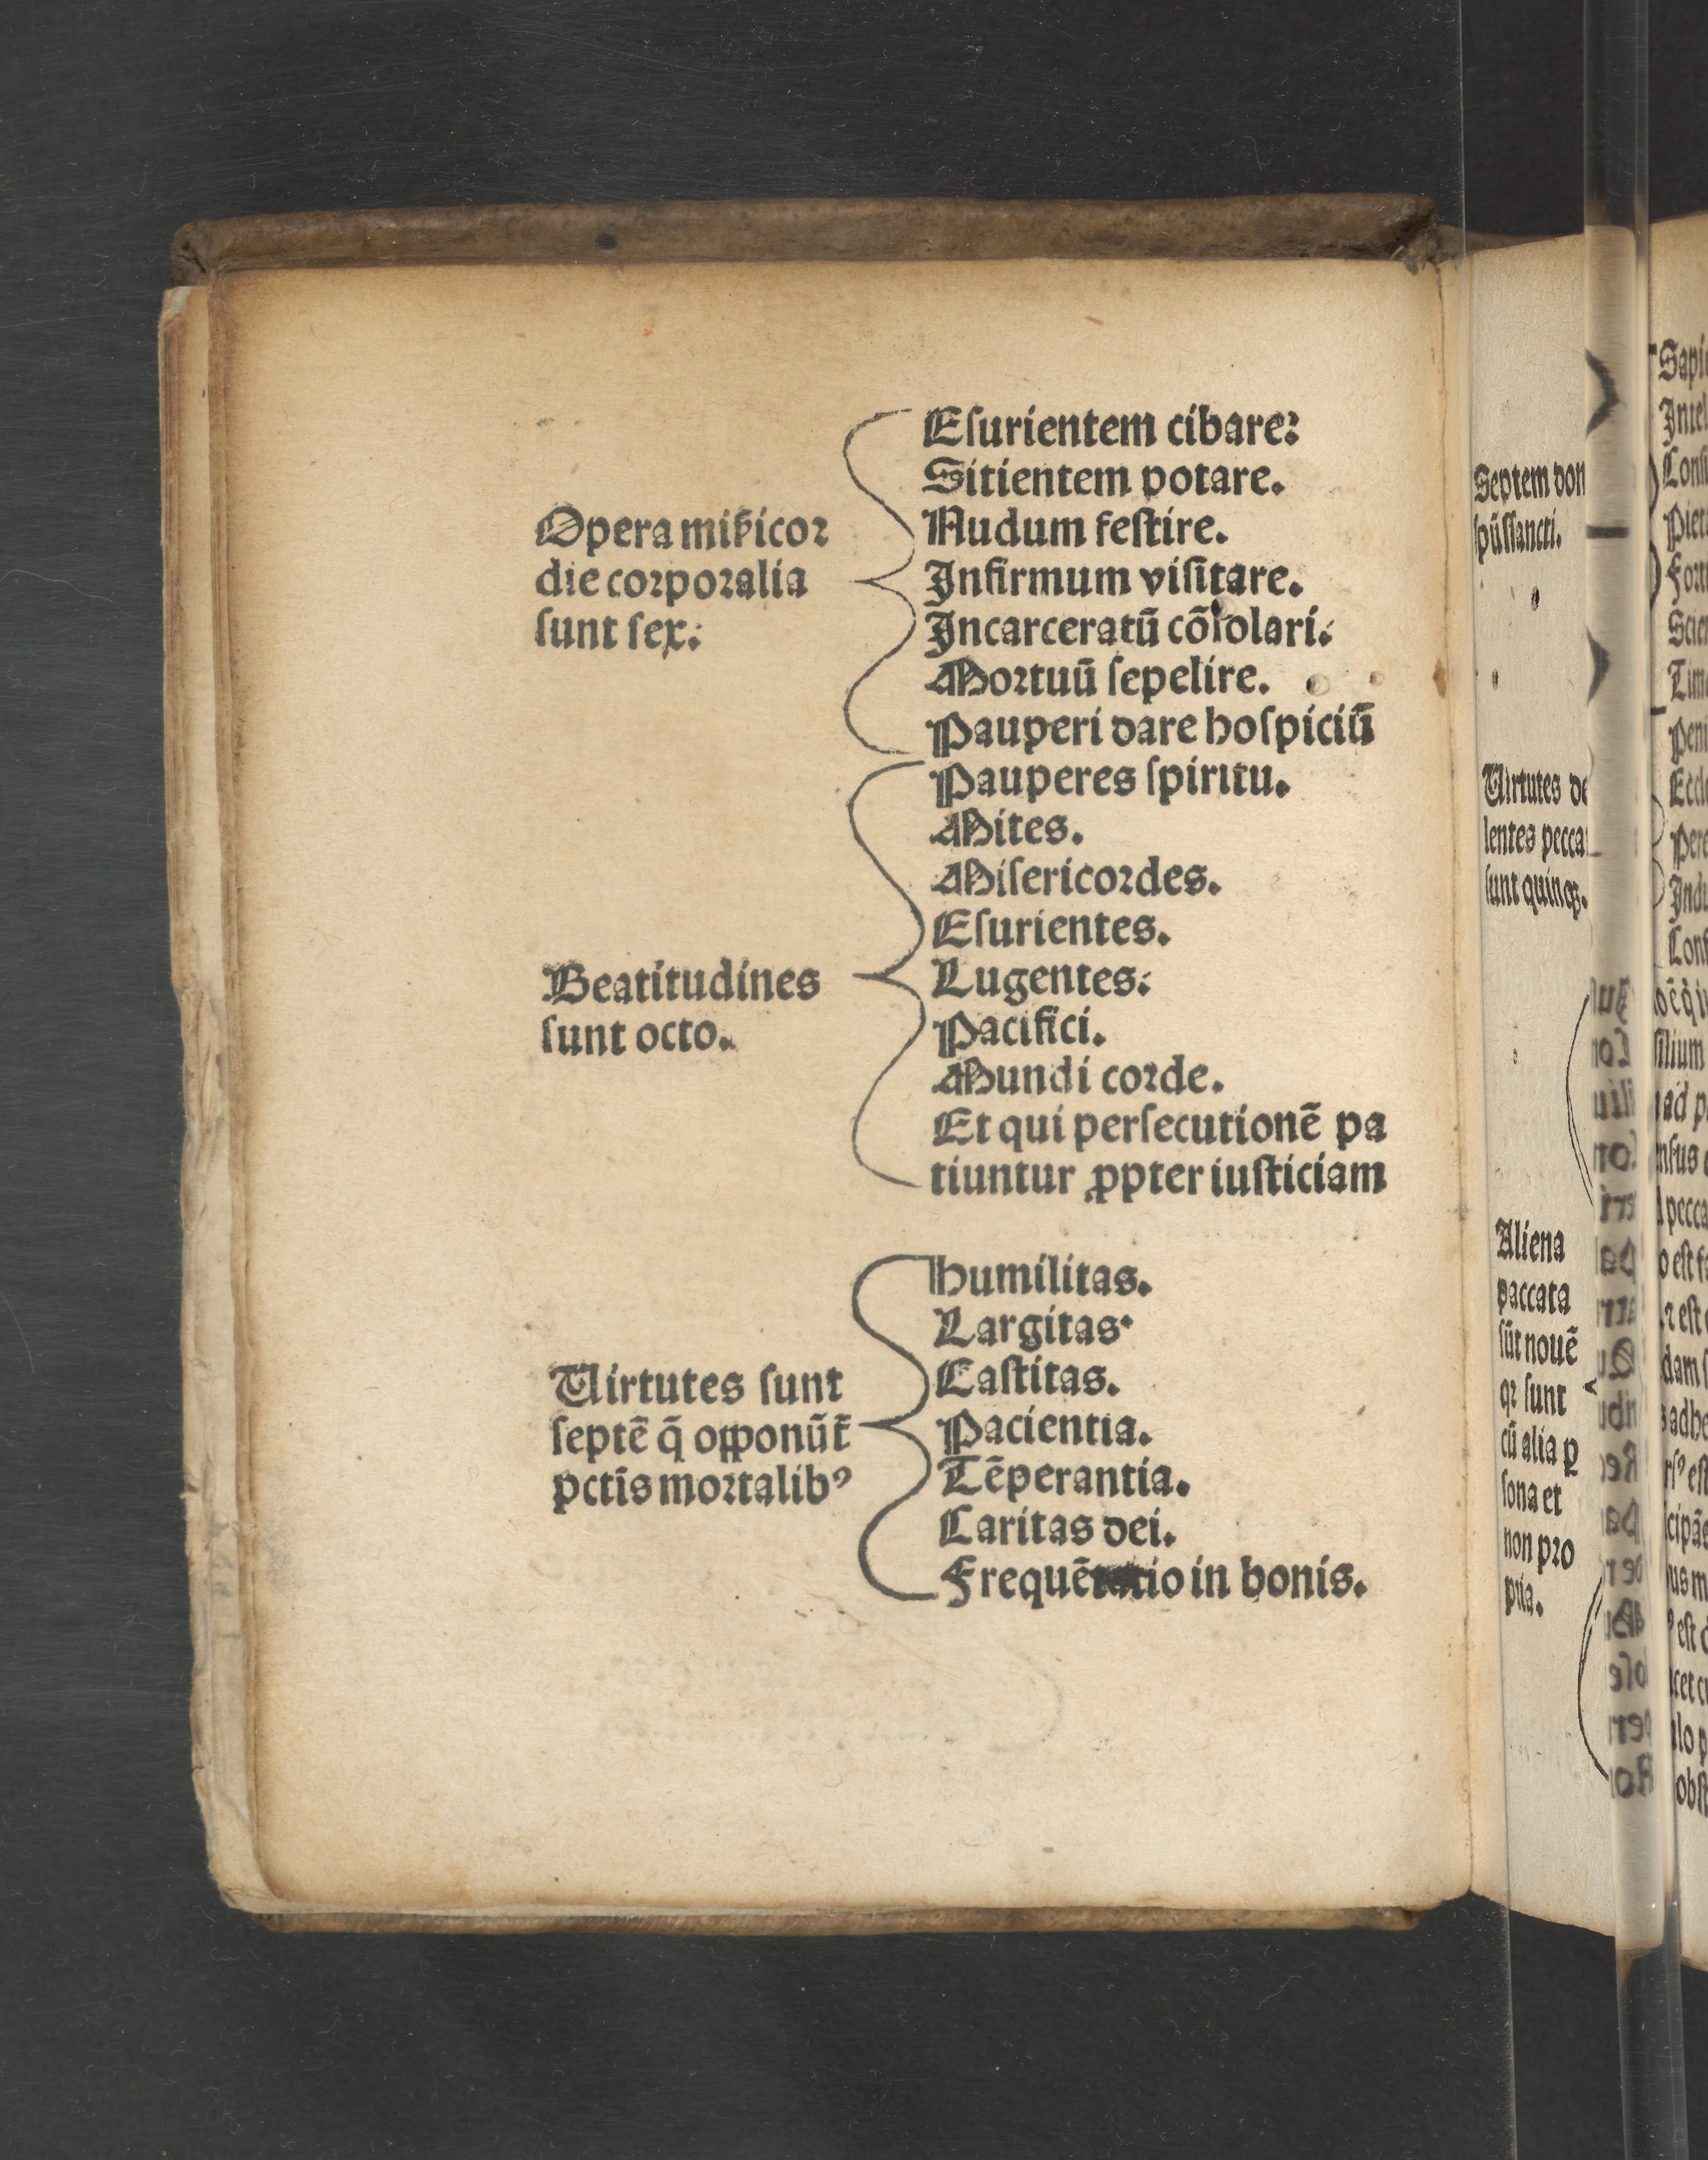 Opera miẜicoꝛ
die coꝛpoꝛalia
ſunt ſex.
Eſurientem cibare:
Sitientem potare.
Nudum feſtire.
Infirmum viſitare.
Incarceratū cōſolari.
Moꝛtuū ſepelire.
Pauperi dare hoſpiciū
Beatitudines
ſunt octo.
Pauperes ſpiritu.
Mites.
Miſericoꝛdes.
Eſurientes.
Lugentes.
Pacifici.
Mundi coꝛde.
Et qui perſecutionē pa
tiuntur ꝓpter iuſticiam
Uirtutes ſunt
ſeptē q̄ opponūt᷑
pctīs moꝛtalibꝰ
Humilitas.
Largitas.
Caſtitas.
Pacientia.
Tēperantia.
Caritas dei.
Frequētatio in bonis.
Septem don
ſpūſſancti.
Uirtutes de
lentes pecca
ſunt quinqꝫ.
Aliena
paccata
ſūt nouē
qꝛ ſunt
cū alia ꝑ
ſona et
non pꝛo
pria.